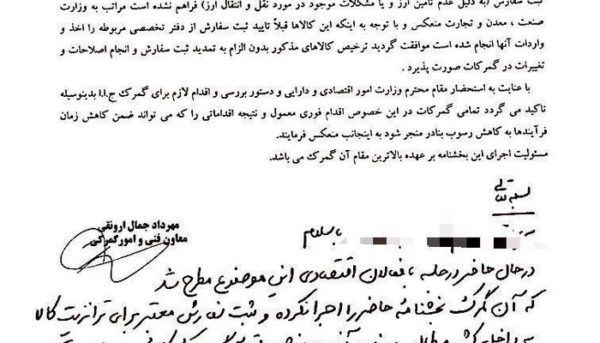 ثبت سفارش (به دلیل عدم تامین ارز و یا مشکلات موجود در مورد نقل و انتقال ارز) فراهم نشده است مراتب به وزارت
صنعت ، معدن و تجارت منعکس و با توجه به اینکه این کالاها قبلاً تایید ثبت سفارش از دفتر تخصصی مربوطه را اخذ و
واردات آنها انجام شده است موافقت گردید ترخیص کالاهای مذکور بدون الزام به تمدید ثبت سفارش و انجام اصلاحات و
تغییرات در گمرکات صورت پذیرد .
با عنایت به استحضار مقام محترم وزارت امور اقتصادی و دارایی و دستور بررسی و اقدام لازم برای گمرک ج.ا.ا بدینوسیله
تاکید می گردد تمامی گمرکات در این خصوص اقدام فوری معمول و نتیجه اقداماتی را که می تواند ضمن کاهش زمان
فرآیندها به کاهش رسوب بنادر منجر شود به اینجانب منعکس فرمایند.
مسئولیت اجرای این بخشنامه بر عهده بالاترین مقام آن گمرک می باشد.
مهرداد جمال ارونقی
معاون فنی و امور گمرکی
بسمه تعالی
با سلام
در حال حاضر در جلسه با فعالان اقتصادی این موضوع مطرح شد
که آن گمرک بخشنامه حاضر را اجرا نکرده و ثبت سفارش معتبر برای ترانزیت کالا
به داخل کشور